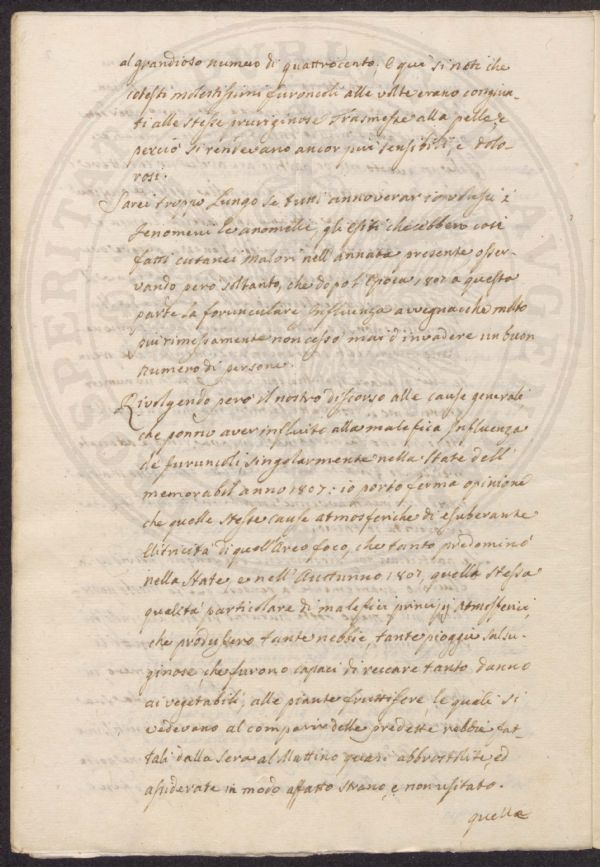 al grandioso numero di quattrocento. E qui si noti che
cotesti molestissimi furoncoli alle volte erano congiun-
ti alle stesse pruriginose trasmesse alla pelle, e
perciò si rendevano ancor più sensibili, e dolo-
rosi.
Sarei troppo lungo se tutti annoverar io volessi i
fenomeni le anomalie, gli esiti che ebbero così
fatti cutanei malori nell'annata presente osser-
vando però soltanto, che dopo l'Epoca 1807 a questa
parte la foruncolare Influenza avvegnacche molto
più rimessamente non cessò mai d'invadere un buon
numero di persone.
Rivolgendo però il nostro discorso alle cause generali
che ponno aver influito alla malefica Influenza
de furuncoli singolarmente nella State dell'
memorabil anno 1807: io porto ferma opinione
che quelle stesse cause atmosferiche di esuberante
Elitricità di quell'Areo foco, che tanto predominò
nella State e nell'Auttunno 1807, quella stessa
qualità particolare di malefici principj Atmosferici,
che produssero tante nebbie, tante pioggie salsu-
ginose, che furono capaci di reccare tanto danno
ai vegetabili, alle piante fruttifere, le quali si
vedevano al comparir delle predette nebbie fat-
tali dalla Sera al Mattino quasi abbrostolite ed
assiderate in modo affatto strano, e non usitato.
quella